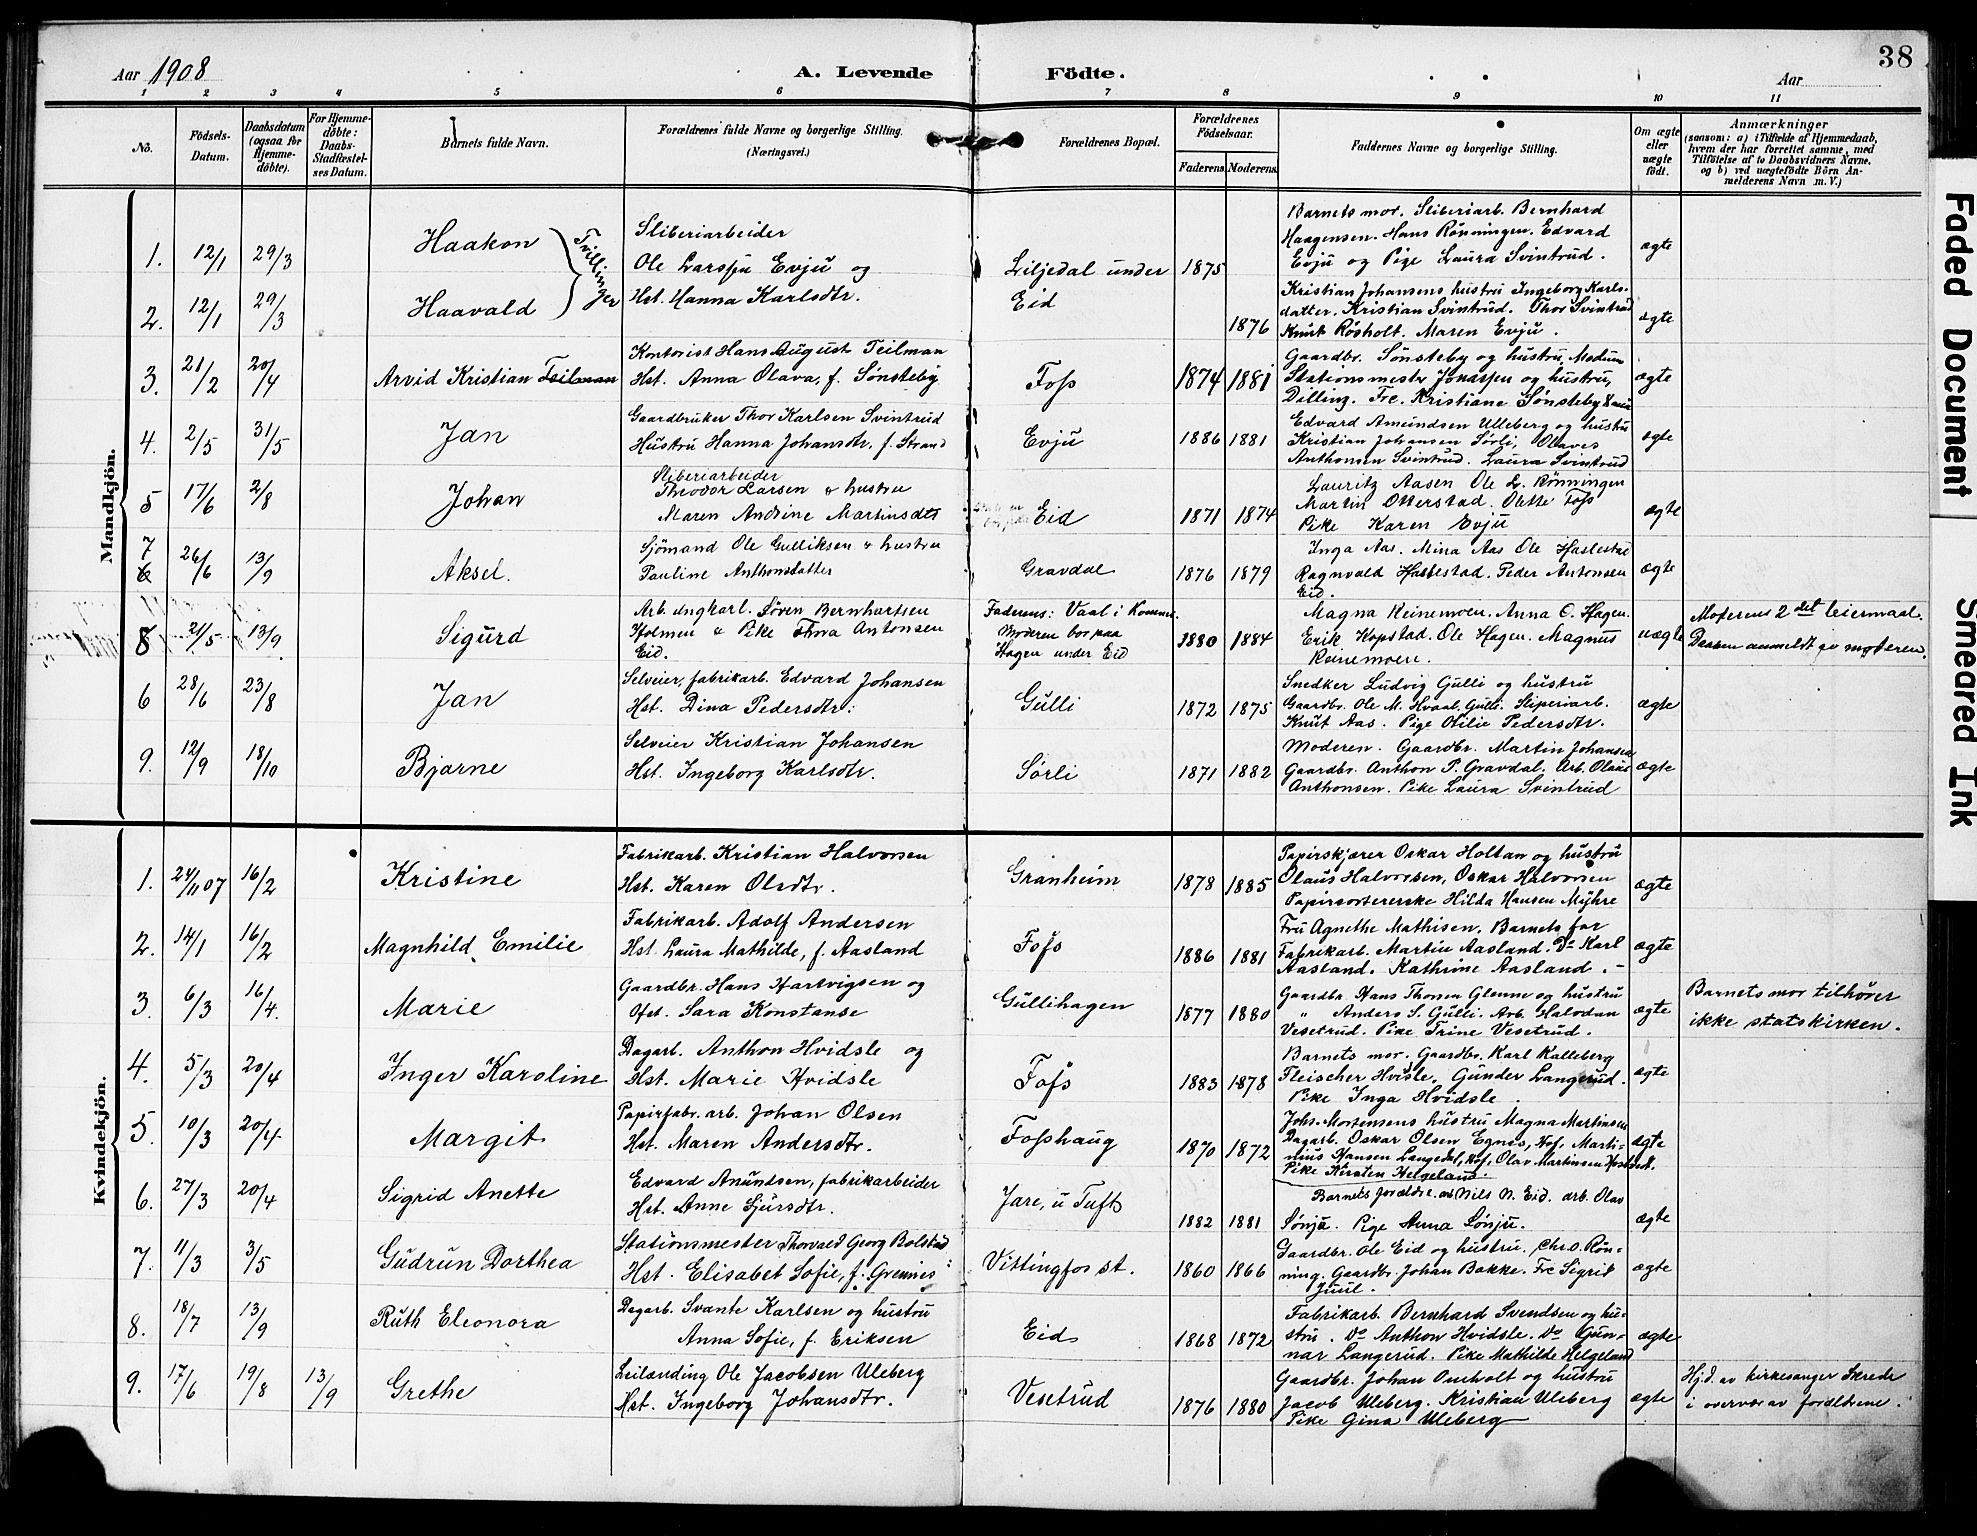 38
Aar 1908
A. Levende Födte.
Aar
1 2 3 4 5 6 7 8 9 10 11
No.
Födsels-Datum.
Daabsdatum (ogsaa for Hjemme-döbte).
For Hjemme-döbte: Daabs-Stadfæstel-ses Datum.
Barnets fulde Navn.
Forældrenes fulde Navne og borgerlige Stilling. (Næringsvei.)
Forældrenes Bopæl.
Forældrenes Födselsaar.
Faderens Moderens
Faddernes Navne og borgerlige Stilling.
Om ægte eller uægte födt.
Anmærkninger
(saasom: a) i Tilfælde af Hjemmedaab,
hvem der har forrettet samme, med
Tilföielse af to Daabsvidners Navne,
og b) ved uægtefödte Börn An-
melderens Navn m. V.)
Mandkjön.
1. 12/1 29/3 Haakon Tvillinger
Sliberiarbeider
Ole Larssen Evju og
Hst. Hanna Karlsdtr.
Liljedal under
Eid
1875
1876
Barnets mor. Sliberiarb. Bernhard
Haagensen. Hans Rønningen. Edvard
Evju og Pige Laura Svintrud.
ægte
2. 12/1 29/3 Haavald
Kristian Johansens hustru Ingeborg Karls-
datter. Kristian Svintrud. Thor Svintrud
Knut Røsholt. Maren Evju.
ægte
3. 21/2 20/4 Arvid Kristian Teilman
Kontorist Hans August Teilman
Hst. Anna Olava, f. Sønsteby
Foss 1874 1881
Gaardbr. Sønsteby og hustru, Modum
Stationsmester Jonassen og hustru,
Dilling. Frk. Kristiane Sønsteby
ægte
4. 2/5 31/5 Jan
Gaardbruker Thor Karlsen Svintrud
Hustru Hanna Johansdtr. f. Strand
Evju 1886 1881
Edvard Amundsen Ulleberg og hustru
Kristian Johansen Sørli, Olaves
Anthonsen Svintrud. Laura Svintrud
ægte
5 17/6 2/8 Johan
Sliberiarbeider
Theodor Larsen & hustru
Maren Andrine Martinsdtr
Eid 1871 1874
Lauritz Aasen Ole L. Rønningen
Martin Otterstad. Olette Foss
Pike Karen Evju
ægte
7 6 26/6 13/9 Aksel.
Sjömand Ole Gulliksen & hustru
Pauline Anthonsdatter
Gravdal 1876 1879
Inga Aas. Mina Aas Ole Haslestad
Ragnvald Haslestad. Peder Antonsen
Eid.
ægte
8 21/5 13/9 Sigurd
Arb. ungkarl. Søren Bernhartsen
Holmen & Pike Thora Antonsen
Eid.
Faderens: Vaal i Kommu.
Moderen bor paa
Hagen under Eid
1880 1884
Magna Reinemoen. Anna O. Hagen.
Erik Kopstad. Ole Hagen. Magnus
Reinemoen.
uægte
Moderens 2det leiermaal.
Daaben anmeldt av moderen.
6 28/6 23/8 Jan
Selveier, fabrikarb. Edvard Johansen
Hst. Dina Pedersdtr.
Gulli 1872 1875
Snedker Ludvig Gulli og hustru
Gaardbr. Ole M. Hvaal, Gulli. Sliperiarb.
Knut Aas. Pige Otilie Pedersdtr.
ægte
9. 12/9 18/10 Bjarne
Selveier Kristian Johansen
Hst. Ingeborg Karlsdtr.
Sørli 1871 1882
Moderen. Gaardbr. Martin Johansen
Gaardbr. Anthon P. Gravdal. Arb. Olaus
Anthonsen. Pike Laura Svintrud
ægte
Kvindekjön.
1. 24/11 07 16/2 Kristine
Fabrikarb. Kristian Halvorsen
Hst. Karen Olsdtr.
Granheim 1878 1885
Papirskjærer Oskar Holtan og hustru
Olaus Halvorsen, Oskar Halvorsen
Papirsortererske Hilda Hansen Myhre
ægte
2. 14/1 16/2 Magnhild Emilie
Fabrikarb. Adolf Andersen
Hst. Laura Mathilde, f. Aasland
Foss 1886 1881
Fru Agnethe Mathisen. Barnets far
Fabrikarb. Martin Aasland. Do Karl
Aasland. Kathrine Aasland.
ægte
3. 6/3 16/4. Marie
Gaardbr. Hans Hartvigsen og
Hst. Sara Konstanse
Gullihagen 1877 1880
Gaardbr. Hans Thomen Glenne og hustru
" Anders S. Gulli. Arb. Halvdan
Vesetrud. Pike Trine Vesetrud.
ægte
Barnets mor tilhører
ikke statskirken.
4. 5/3 20/4 Inger Karoline
Dagarb. Anthon Hvidsle og
Hst. Marie Hvidsle
Foss 1883 1878
Barnets mor. Gaardbr. Karl Kalleberg
Fleischer Hvisle. Gunder Langerud.
Pike Inga Hvidsle.
ægte
5. 10/3 20/4 Margit
Papirfabr. arb. Johan Olsen
Hst. Maren Andersdtr.
Fosshaug 1870 1872
Johs. Mortensens hustru Magna Martinsen
Dagarb. Oskar Olsen Egnes, Hof. Marti-
nius Hansen Langedal, Hof, Olav Martinsen
Pike Kirsten Helgeland
ægte
6. 27/3 20/4 Sigrid Anette
Edvard Anundsen, fabrikarbeider
Hst. Anne Sjursdtr.
Jare, u Tufts 1882 1881
Barnets forældre. arb Nils N. Eid. arb. Olav
Sønju. Pige Anna Sønju.
ægte
7. 11/3 3/5 Gudrun Dorthea
Stationsmester Thorvald Georg Bolstad
Hst. Elisabet Sofie, f. Grennes
Vittingfos st. 1860 1866
Gaardbr. Ole Eid og hustru. Chr. O. Røn-
ning. Gaardbr. Johan Bakke. Frk Sigrid
Juul.
ægte
8. 18/7 13/9 Ruth Eleonora
Dagarb. Svante Karlsen og hustru
Anna Sofie, f. Eriksen
Eid 1868 1872
Fabrikarb. Bernhard Svendsen og hu-
stru. Do Anthon Hvidsle. Do Gun-
nar Langerud. Pike Mathilde Helgeland
ægte
9. 17/6 19/8 13/9 Grethe
Leilænding Ole Jacobsen Uleberg
Hst. Ingeborg Johansdtr.
Vesetrud 1876 1880
Gaardbr. Johan Omholt og hustru
Jacob Uleberg. Kristian Uleberg
Pike Gina Uleberg
ægte
Hjd. av kirkesanger Skrede
i overvær av forældrene.
Faded Document
Smeared Ink